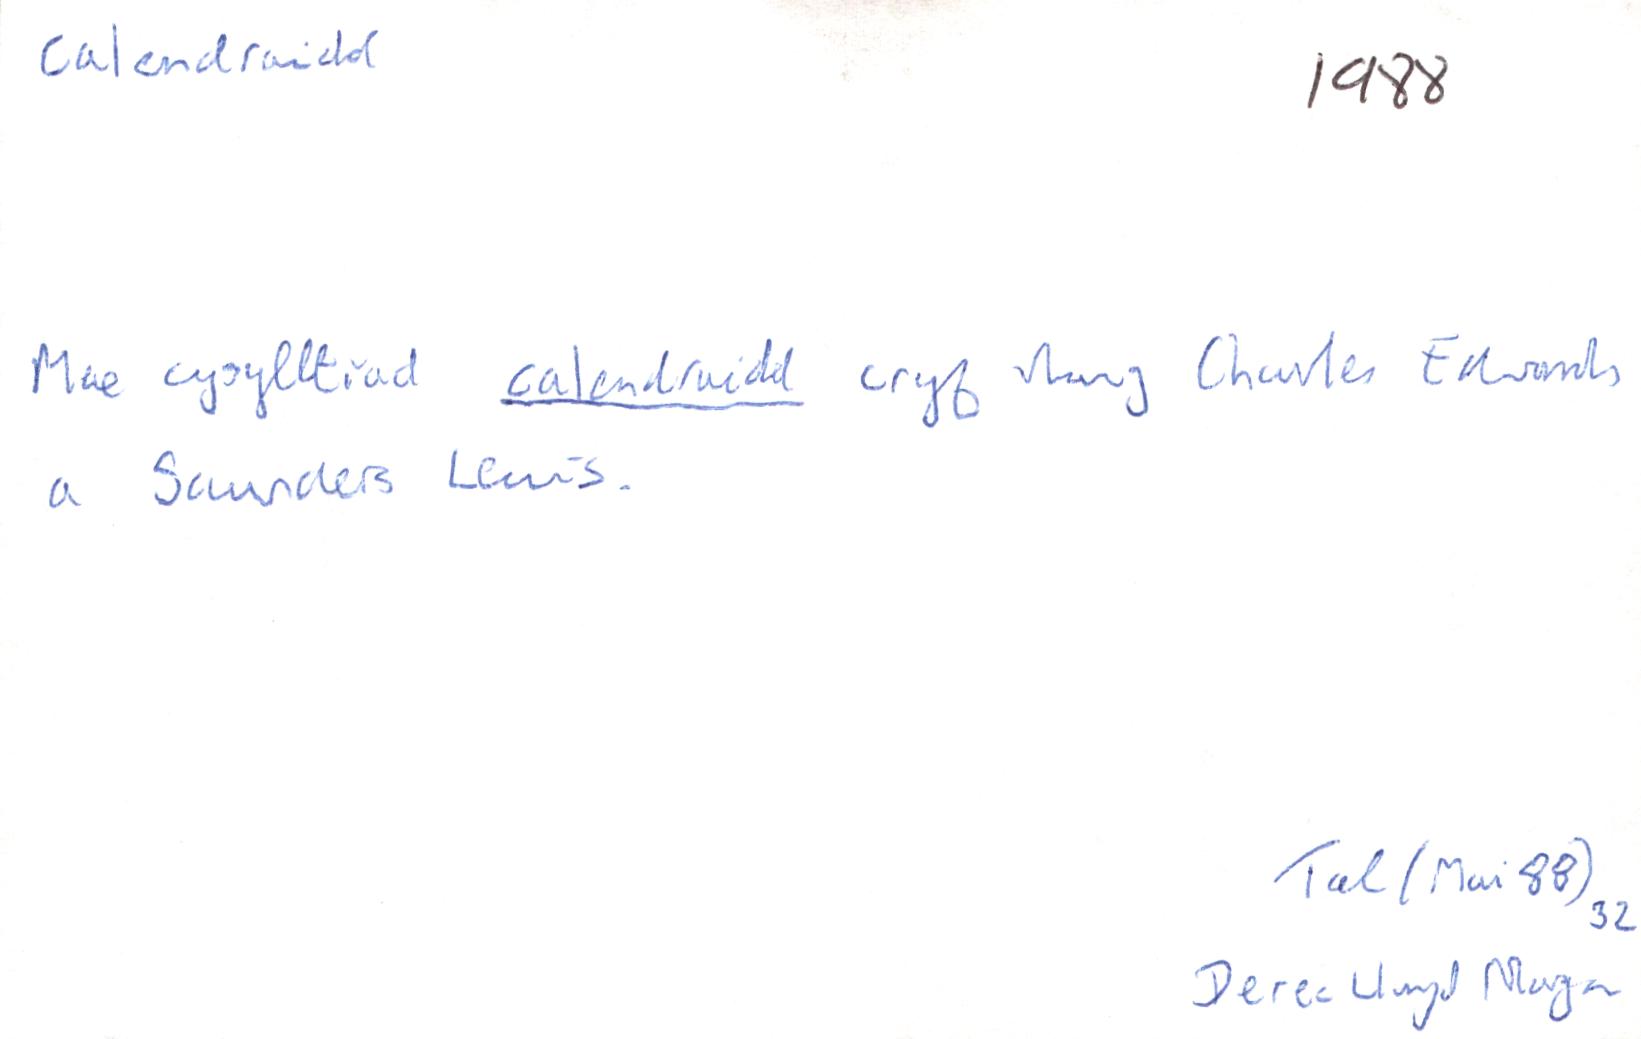 Calendraidd
1988
Mae cysylltiad calendraidd cryf rhwng Charles Edwards
a Saunders Lewis.
Tal (Mai 88) 32
Derec Llwyd Morgan